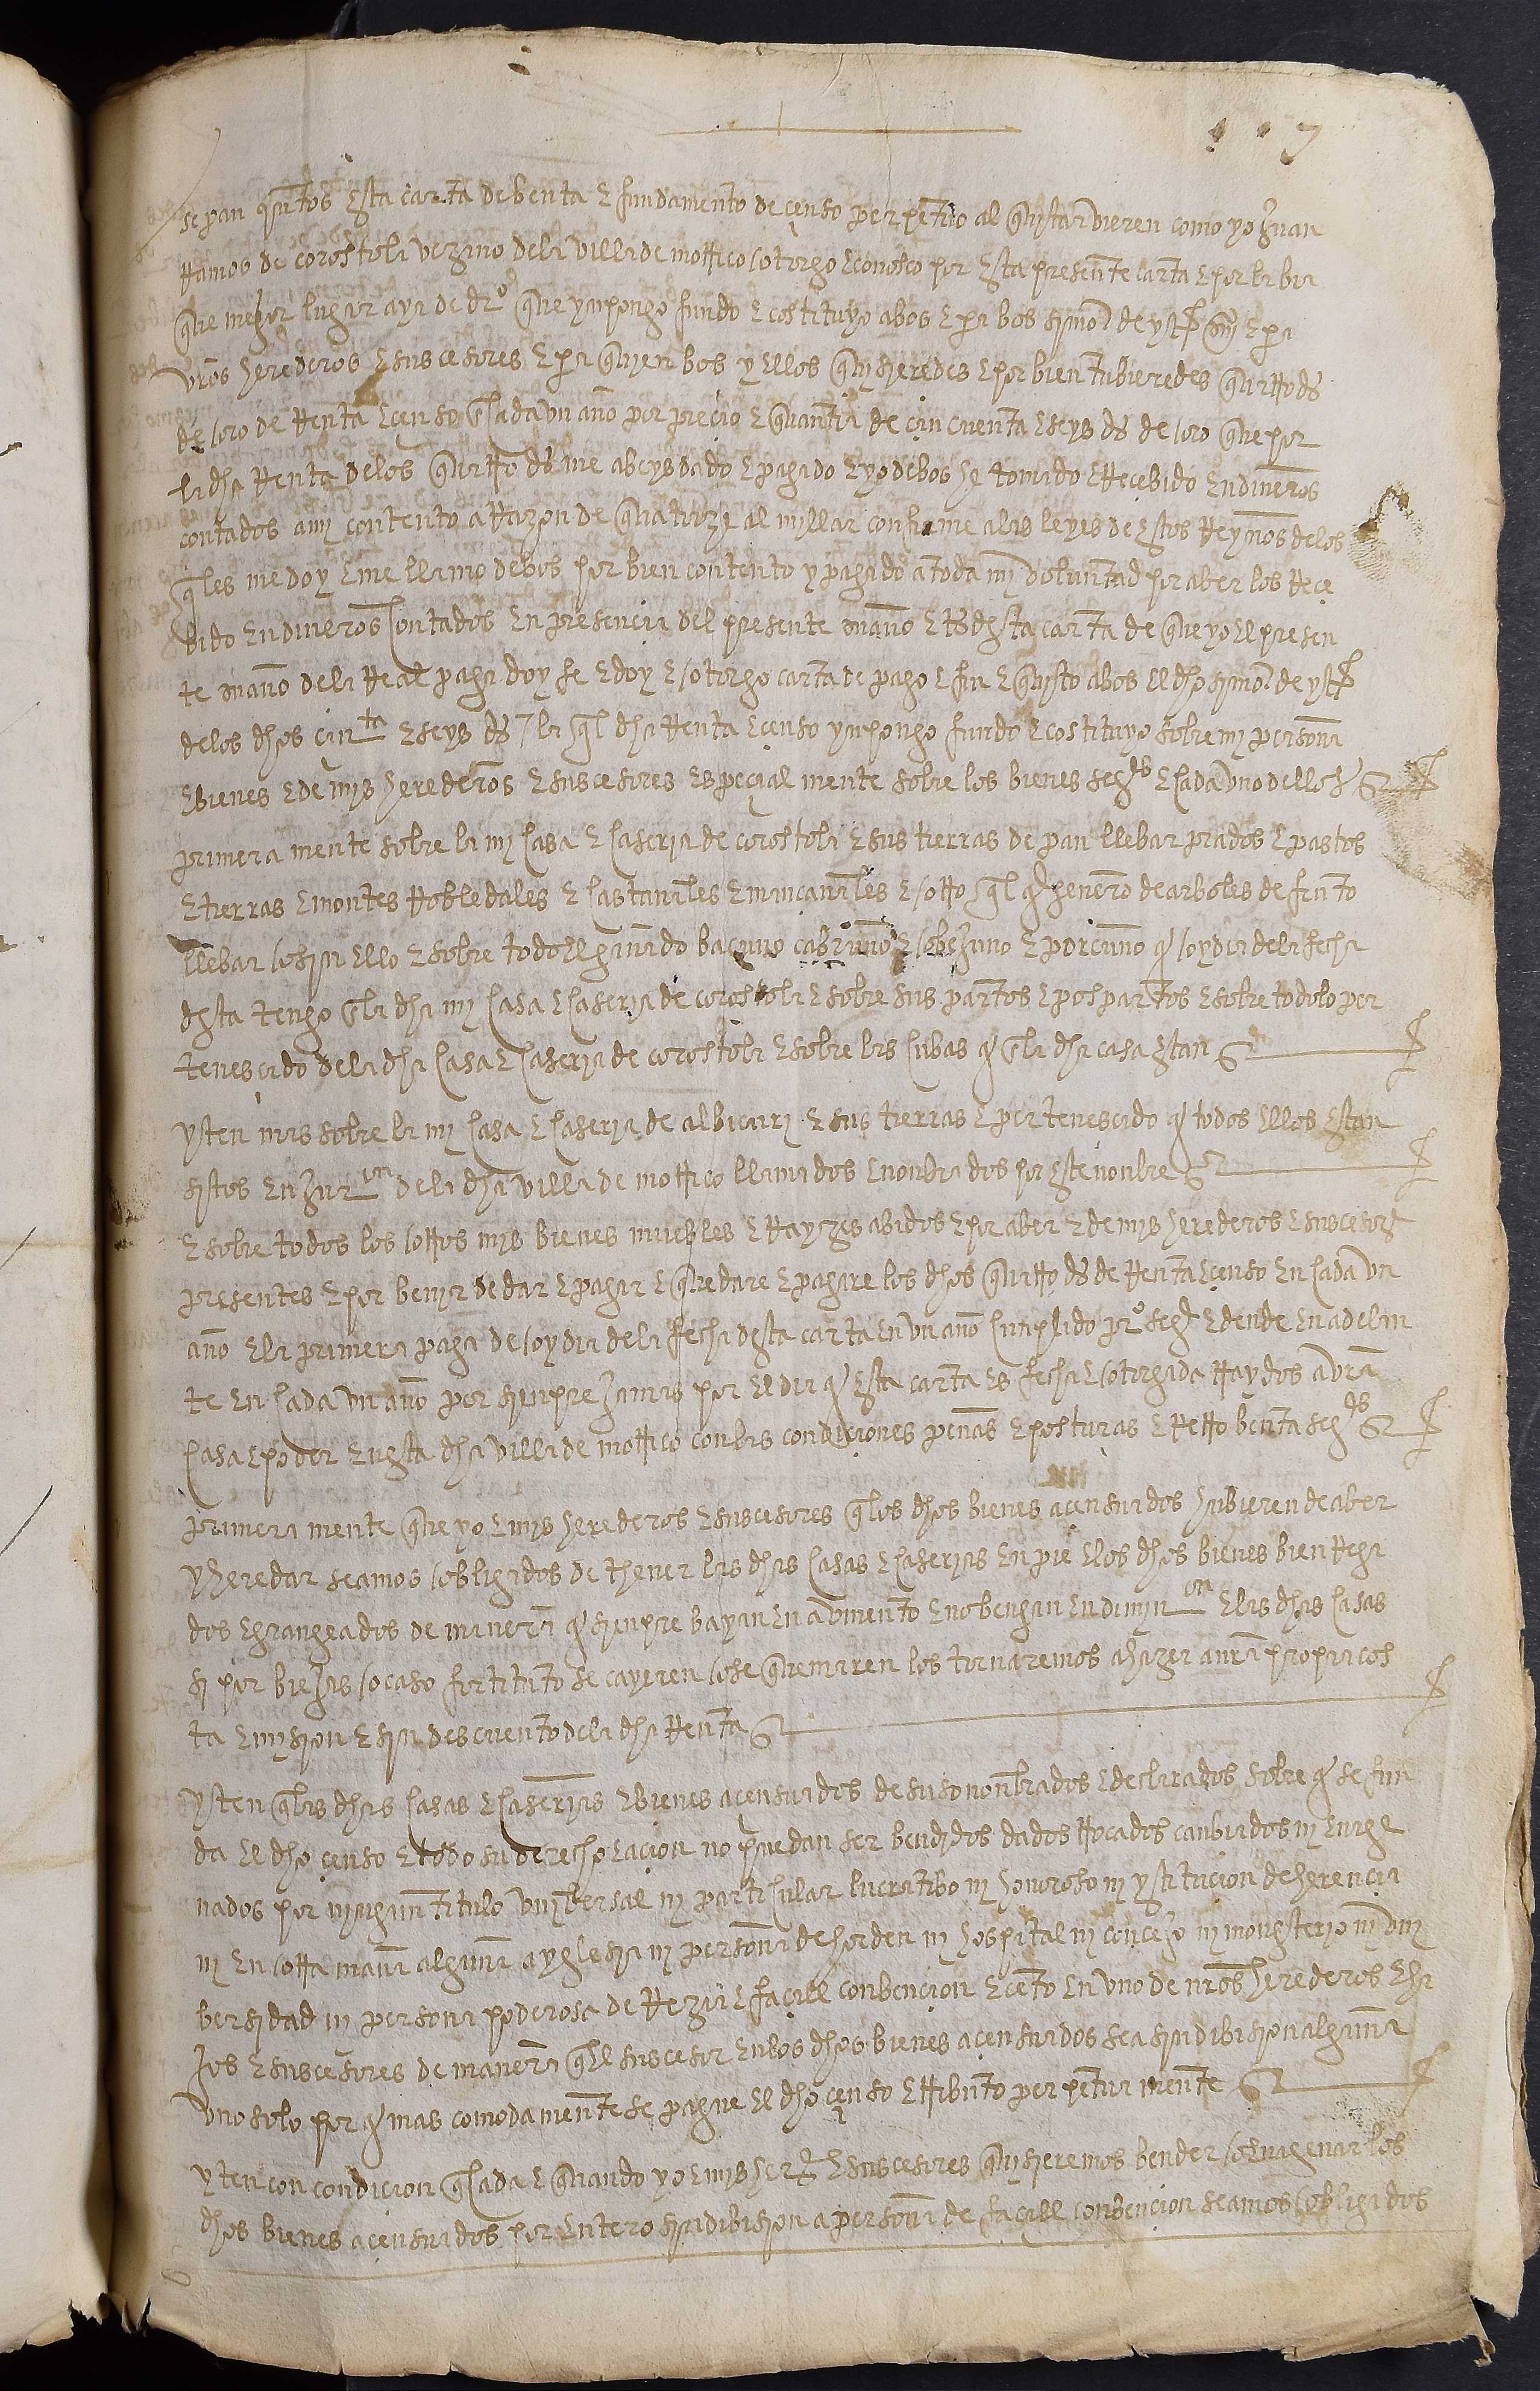 7
Sepan quantos esta carta de benta e fundamento de çenso perpetuo al quitar vieren como yo Juan
Ramos de corostola vezino dela villa de motrico otorgo e conosco por esta presente carta e por la bia
que mejor lugar aya de dro que ynpongo fundo e costituyo a bos e pa bos simon de
vros herederos e suscesores e pa quien bos y ellos quisieredes e por bien tubieredes quatro ds
de oro de Renta e çenso en cada vn año por preçio e quantia de çincuenta e seys ds de oro que por
la dha Renta delos quatro ds me abeys dado e pagado e yo de bos he tomado e Recebido en dineros
contados a mi contento a Razon de quatorze al myllar conforme a las leyes de estos Reynos delos
qles me doy e me llamo de bos por bien contento y pagado a toda mi voluntad por aber los Rece
bido en dineros contados en presencia del presente e ts desta carta de que yo el presen
te dela Real paga doy fe e doy e otorgo carta de pago e fin e quito a bos el dho simon de
delos dhos cinta e seys ds la ql dha Renta e çenso ynpongo fundo e costituyo sobre mi persona
e bienes e de mys herederos e suscesores espeçial mente sobre los bienes segtes e cada vno dellos
primera mente sobre la mi casa e caseria de corostola e sus tierras de pan llebar prados e pastos
e tierras e montes Robledales e castanales e mançanales e otro ql q genero de arboles de fruto
llebar o sin ello e sobre todo el ganado bacuno cabruno e obejuno e porcuno q oy dia dela fecha
desta tengo en la dha mi casa e caseria de corostola e sobre sus partos e pos partos e sobre todo lo per
tenescido dela dha casa e caseria de corostola e sobre las cubas q en la dha casa estan
yten mas sobre la mi casa e caseria de albicuri e sus tierras e pertenescido q todos ellos estan
sitos en Juron dela dha villa de motrico llamados e nonbrados por este nonbre
e sobre todos los otros mis bienes muebles e Rayzes abidos e por aber e de mys herederos e suscesores
presentes e por benir de dar e pagar e que dare e pagare los dhos quatro ds de Renta e çenso en cada vn
año e la primera paga de oy dia dela fecha desta carta en vn año cunplido pro segte e dende en adelan
te en cada vn año por sienpre jamas por el dia q esta carta es fecha e otorgada traydos a vra
casa e poder en esta dha villa de motrico con las condiciones penas e posturas e Retro benta segtes
primera mente que yo e mys herederos e suscesores q los dhos bienes acensuados hubieren de aber
y heredar seamos obligados de thener las dhas casas e caserias en pie e los dhos bienes bien Regi
dos e grangeados de manera q sienpre bayan en avmento e no bengan en diminon e las dhas casas
si por biejas o caso fortituto se cayeren o se quemaren los tornaremos a hazer a nra propia cos
ta e mysion e sin descuento dela dha Renta
yten q las dhas casas e caserias e bienes acensuados de suso nonbrados e declarados sobre q se fun
da el dho çenso e todo su derecho e acion no puedan ser bendidos dados trocados canbiados ni enage
nados por ningun titulo vnibersal ni particular lucratibo ni honoroso ni ystitucion de herencia
ni en otra mana alguna a yglesia ni persona de horden ni hospital ni conçejo ni monesterio ni vni
bersidad ni persona poderosa de Rezia e façill conbencion eceto en vno de nros herederos e hi
jos e suscesores de manera q el suscesor en los dhos bienes acensuados sea sin dibision alguna
vno solo por q mas comodamente se pague el dho çenso e tributo perpetua mente
yten con condicion q cada e quando yo e mys hers e suscesores quisieremos bender o enagenar los
dhos bienes acensuados por entero sin dibision a persona de façill conbencion seamos obligados